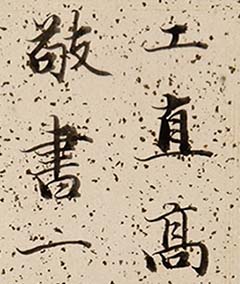 工直高
敬書一